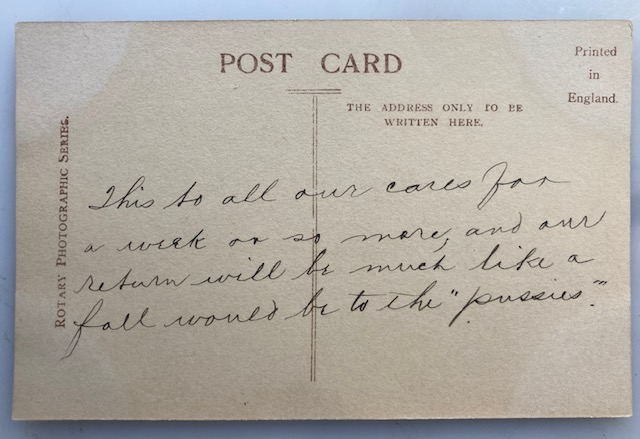 POST CARD
Printed
in
England.
THE ADDRESS ONLY TO BE
WRITTEN HERE.
ROTARY PHOTOGRAPHIC SERIES.
This to all our cares for
a week or so more, and our
return will be much like a
fall would be to the "pussies".